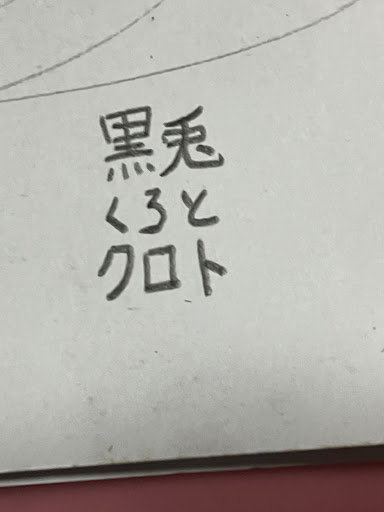 黒兎
くろと
クロト